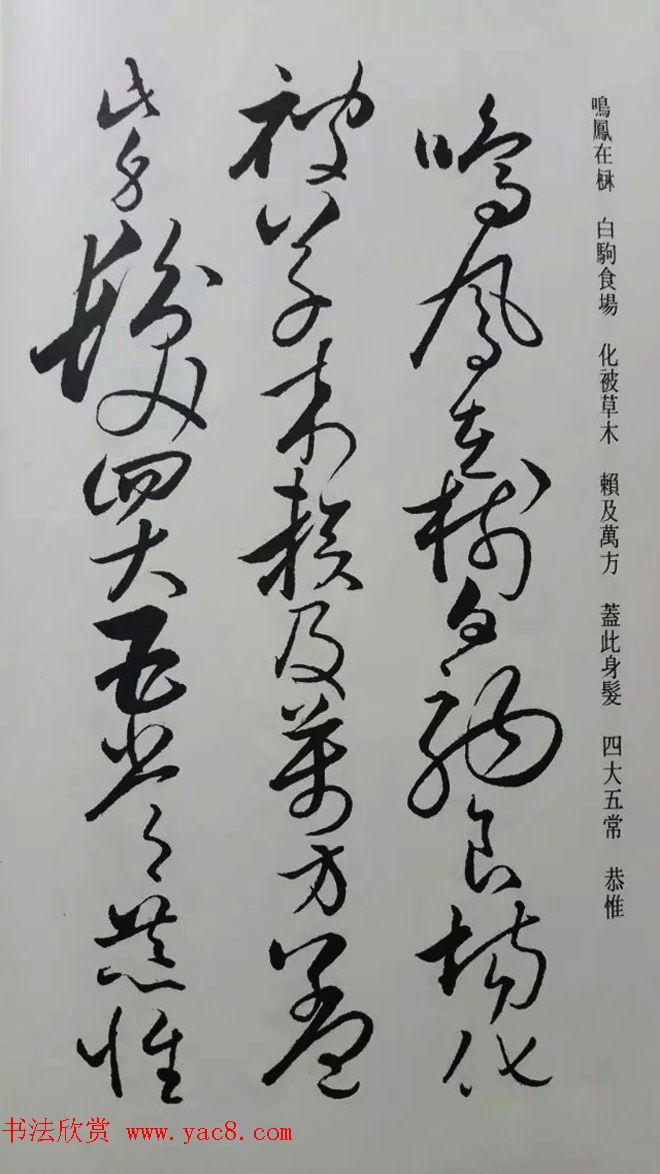 鳴鳳在 白駒食場 化被草木 賴及萬方 蓋此身髮 四大五常 恭惟
鳴鳳在樹白駒食場化
被草木賴及萬方蓋
此身髮四大五常恭惟
书法欣赏 www.yac8.com